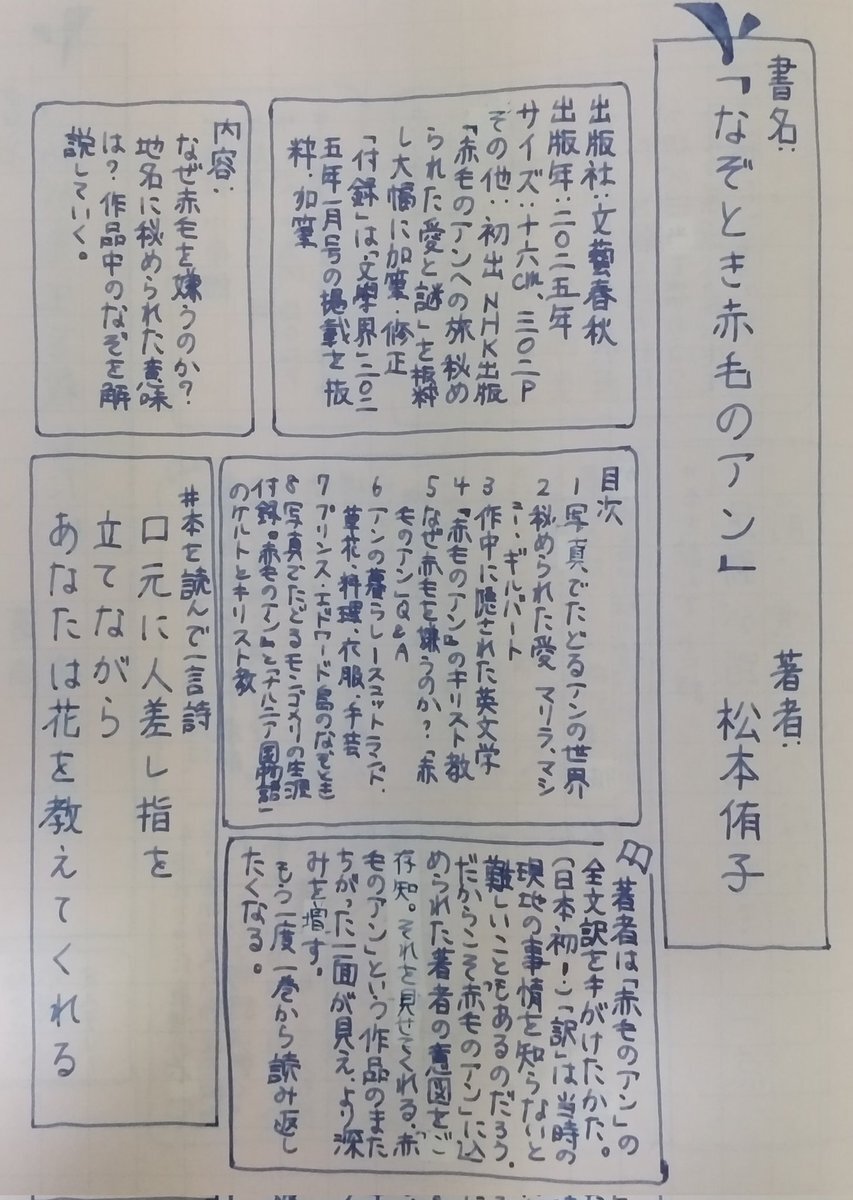 書名:
「なぞとき赤毛のアン」
著者:
松本侑子
出版社:文藝春秋
出版年:二〇二五年
サイズ:十六cm、三〇二P
その他:初出 NHK出版
「赤毛のアンへの旅 秘め
られた愛と謎」を抜粋
し大幅に加筆・修正
「付録」は「文學界」二〇二
五年一月号の掲載を抜
粋、加筆
内容:
なぜ赤毛を嫌うのか?
地名に秘められた意味
は?作品中のなぞを解
説していく。
目次
1 写真でたどるアンの世界
2 秘められた愛 マリラ、マシ
ュー、ギルバート
3 作中に隠された英文学
4 『赤毛のアン』のキリスト教
5 なぜ赤毛を嫌うのか?『赤
毛のアン』Q&A
6 アンの暮らしースコットランド、
草花、料理、衣服、手芸
7 プリンス・エドワード島のなぞとき
8 写真でたどるモンゴメリの生涯
付録『赤毛のアン』と『ナルニア国物語』
のケルトとキリスト教
著者は「赤毛のアン」の
全文訳を手がけたかた。
(日本初!)「訳」は当時の
現地の事情を知らないと
難しいこともあるのだろう。
だからこそ「赤毛のアン」に込
められた著者の意図をご
存知。それを見せてくれる、「赤
毛のアン」という作品のまた
ちがった一面が見え、より深
みを増す。
もう一度一巻から読み返し
たくなる。
#本を読んで一言詩
口元に人差し指を
立てながら
あなたは花を教えてくれる